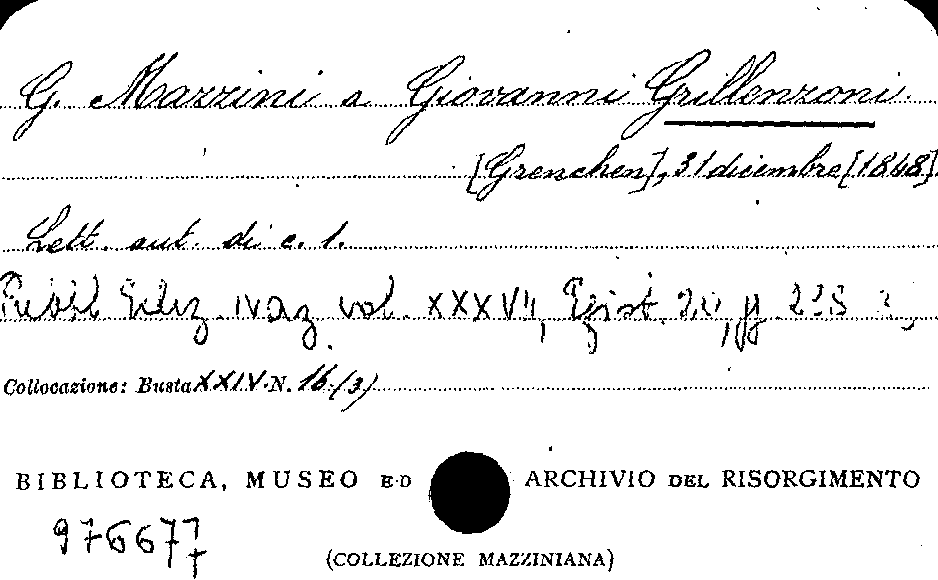 G. Mazzini a Giovanni Grillenzoni.
[Grenchen], 31 dicembre [1848].
Lett. aut. di c. 1.
Publ. Ediz. naz. vol. XXXVII, Epist.
Collocazione: Busta XXIV. N. 16 (3)
BIBLIOTECA, MUSEO ED ARCHIVIO DEL RISORGIMENTO
976677
(COLLEZIONE MAZZINIANA)